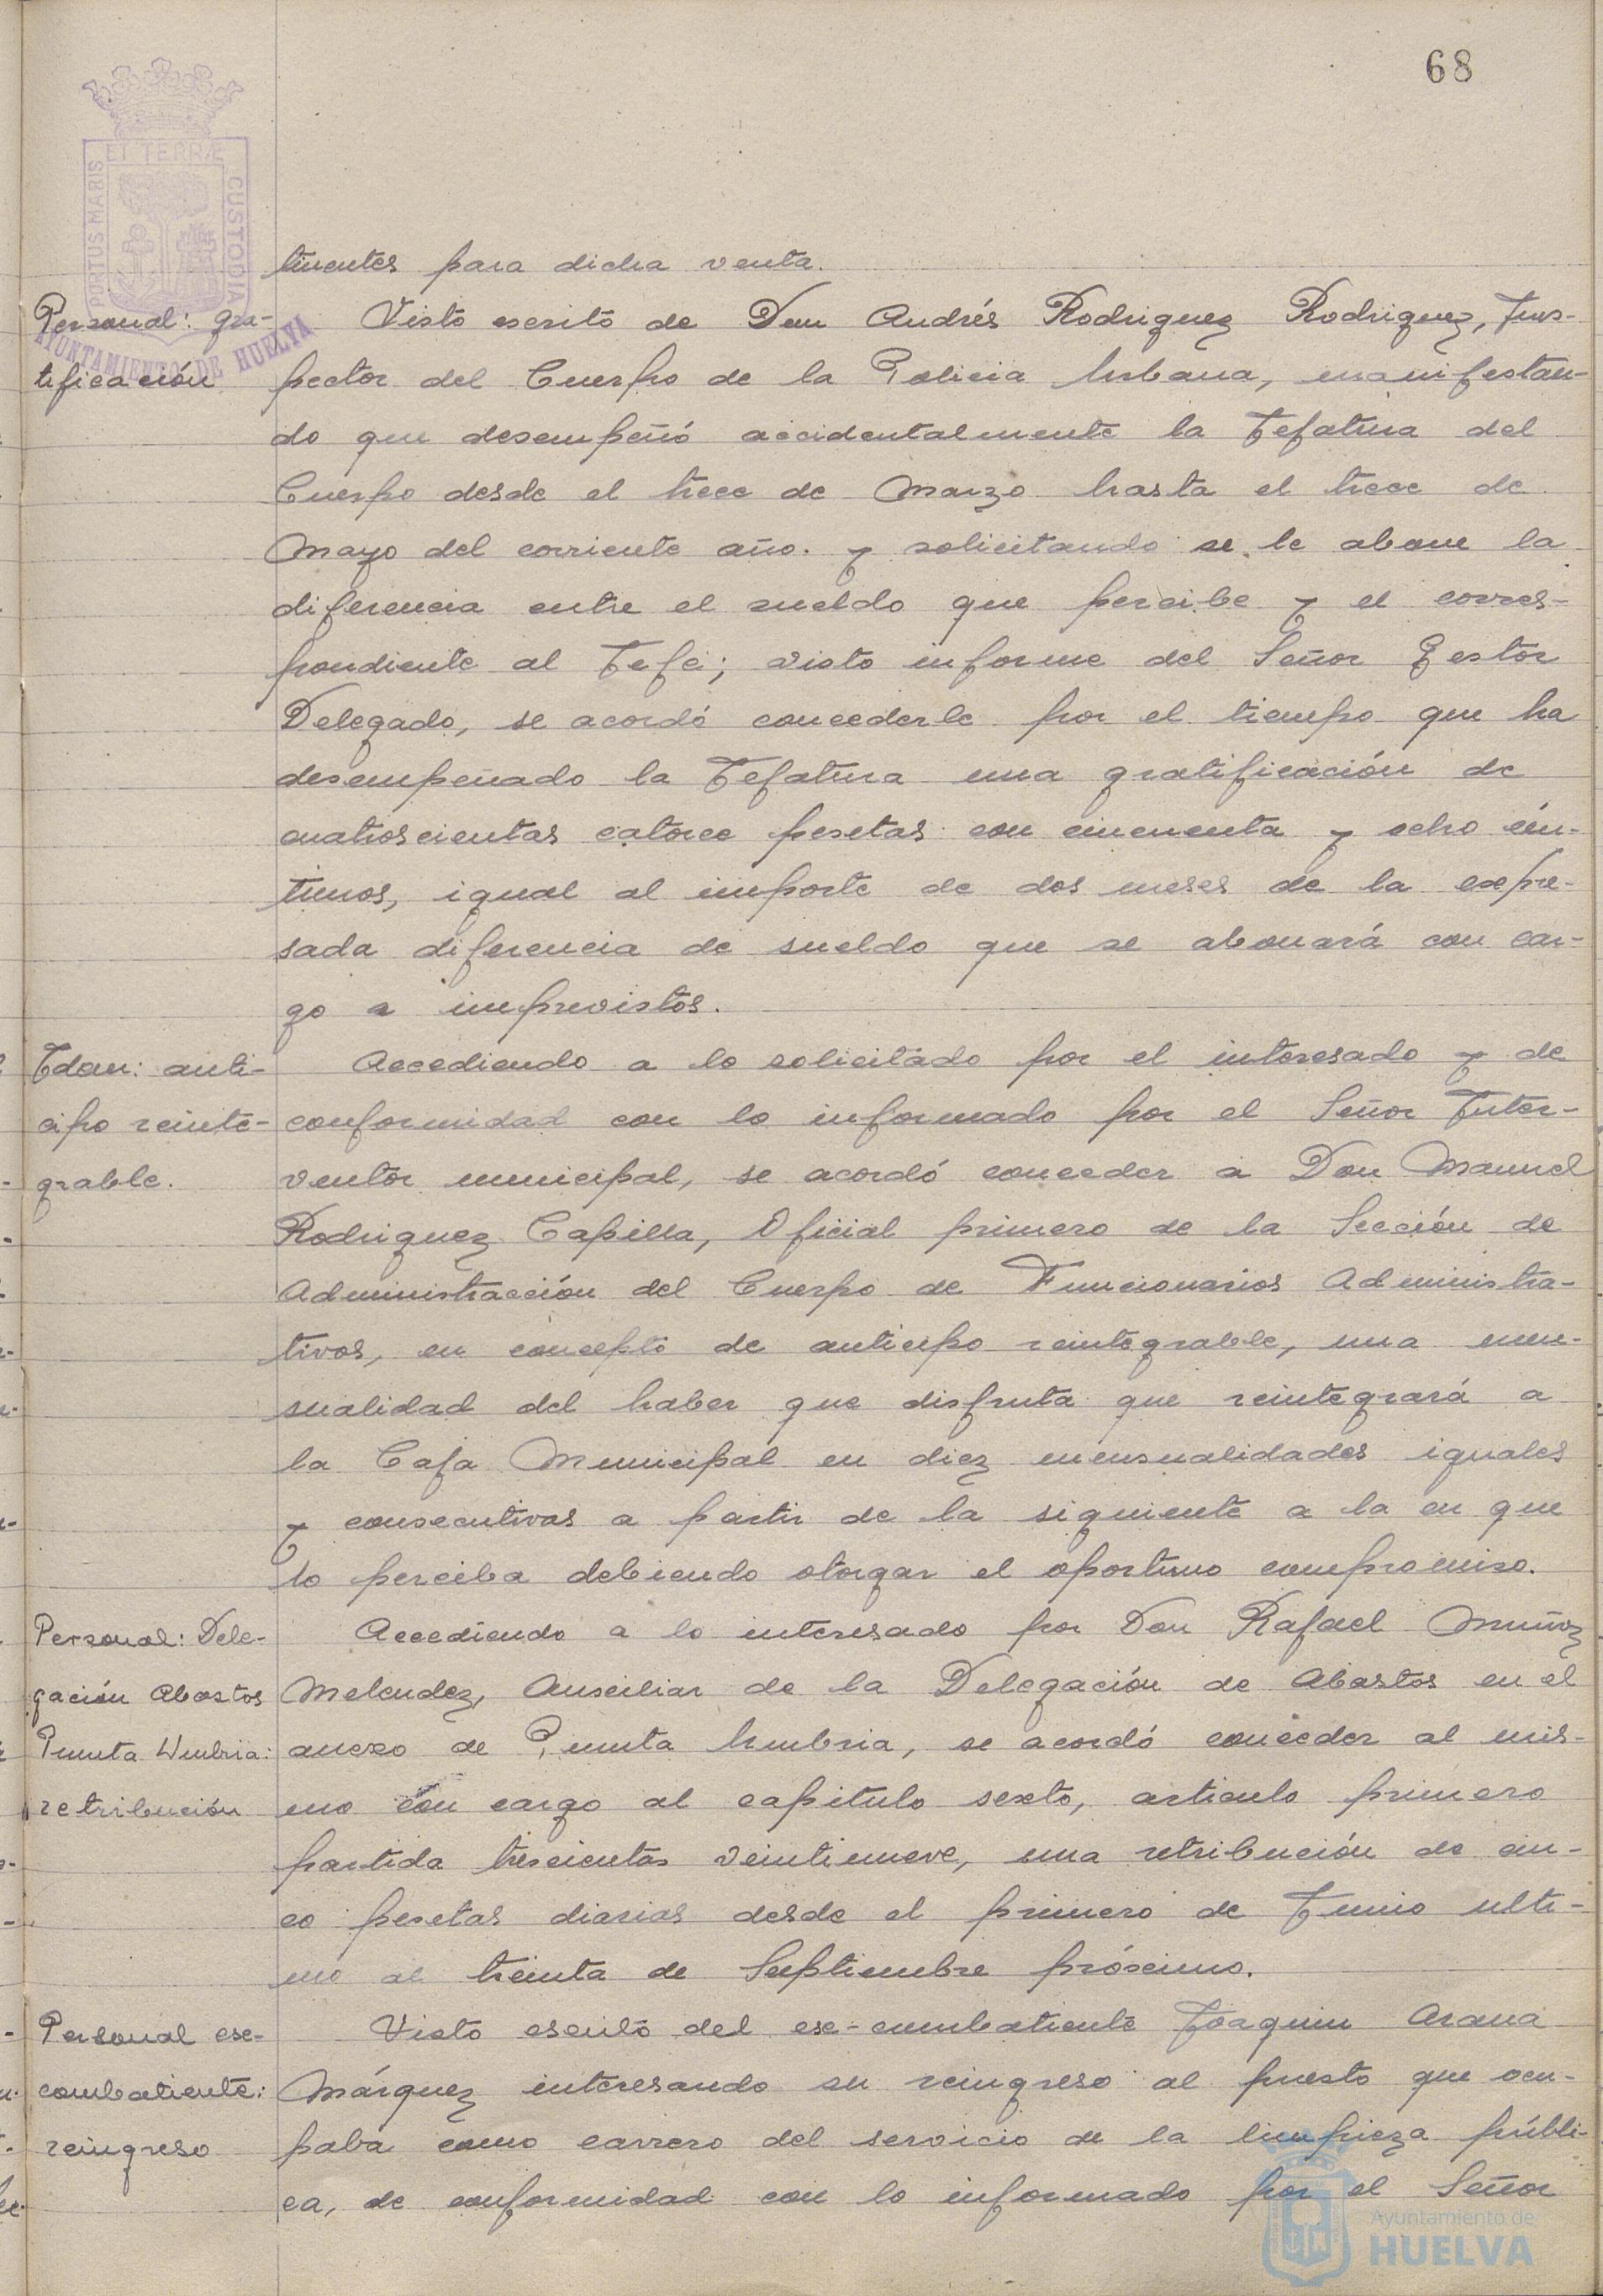 68
PORTUS MARIS ET TERRÆ CUSTODIA
AYUNTAMIENTO DE HUELVA
tinentes para dicha venta.
Personal: gra-
tificación
Visto escrito de Don Andrés Rodriguez Rodriguez, Ins-
pector del Cuerpo de la Policia Urbana, manifestan-
do que desempeñó accidentalmente la Jefatura del
Cuerpo desde el trece de Marzo hasta el trece de
Mayo del corriente año. y solicitando se le abone la
diferencia entre el sueldo que percibe y el corres-
pondiente al Jefe; visto informe del Señor Gestor
Delegado, se acordó concederle por el tiempo que ha
desempeñado la Jefatura una gratificación de
cuatroscientas catorce pesetas con cincuenta y ocho cén-
timos, igual al importe de dos meses de la expre-
sada diferencia de sueldo que se abonará con car-
go a imprevistos.
Idem: anti-
cipo reinte-
grable.
Accediendo a lo solicitado por el interesado y de
conformidad con lo informado por el Señor Inter-
ventor municipal, se acordó conceder a Don Manuel
Rodriguez Capilla, Oficial primero de la Sección de
Administracción del Cuerpo de Funcionarios Administra-
tivos, en concepto de anticipo reintegrable, una men-
sualidad del haber que disfruta que reintegrará a
la Caja Municipal en diez mensualidades iguales
y consecutivas a partir de la siguiente a la en que
lo perciba debiendo otorgar el oportuno compromiso.
Personal: Dele-
gación Abastos
Punta Umbria:
retribución
Accediendo a lo interesado por Don Rafael Muñoz
Melendez, Auxiliar de la Delegación de Abastos en el
anexo de Punta Umbria, se acordó conceder al mis-
mo con cargo al capitulo sexto, articulo primero
partida trescientas veintinueve, una retribución de cin-
co pesetas diarias desde el primero de Junio ulti-
mo al treinta de Septiembre próximo.
Personal ex-
combatiente:
reingreso
Visto escrito del ex-combatiente Joaquin Arana
Márquez interesando su reingreso al puesto que ocu-
paba como carrero del servicio de la limpieza públi-
ca, de conformidad con lo informado por el Señor
Ayuntamiento de
HUELVA